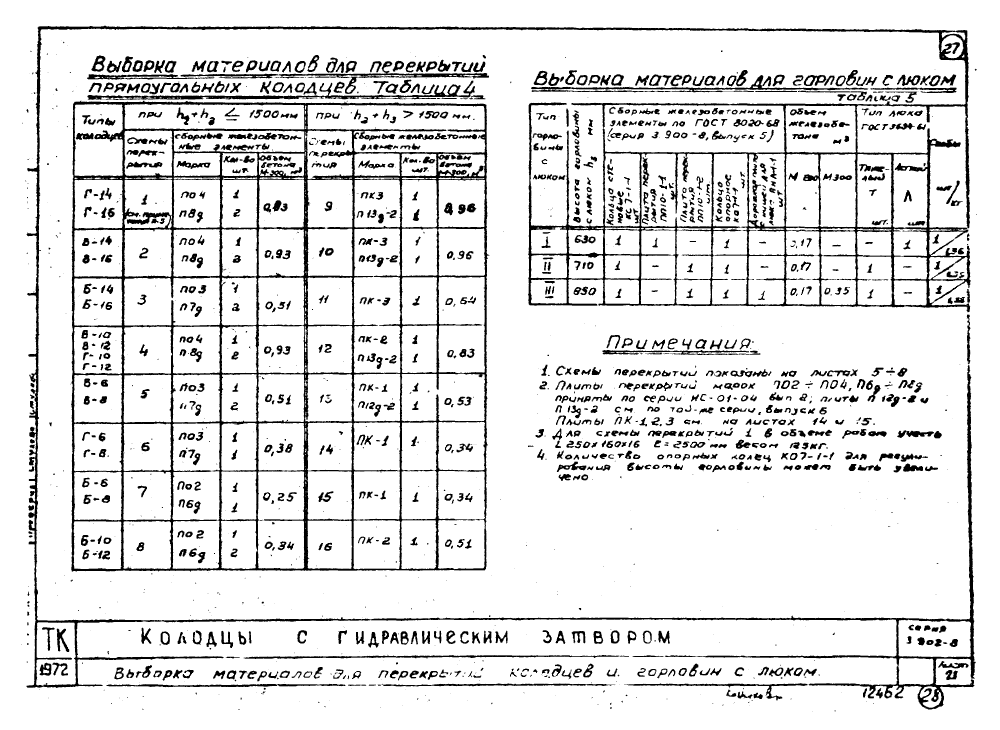 27
Выборка материалов для перекрытий
прямоугольных колодцев. Таблица 4
Типы колодцев
при h2+h3 ≤ 1500 мм
при h2+h3 > 1500 мм.
Схемы перекрытия
Сборные железобетонные элементы
Схемы перекрытия
Сборные железобетонные элементы
Марка Кол-во шт. Объем бетона М-300, м³
Марка Кол-во шт. Объем бетона М-300, м³
Г-14 1 ПО4 1 0,93 9 ПК3 1 0,96
Г-16 П8д 2 П13д-2 1
В-14 2 ПО4 1 0,93 10 ПК-3 1 0,96
В-16 П8д 2 П13д-2 1
Б-14 3 ПО3 1 0,51 11 ПК-3 1 0,64
Б-16 П7д 2
В-10 4 ПО4 1 0,93 12 ПК-2 1 0,83
В-12 П8д 2 П13д-2 1
Г-10
Г-12
В-6 5 ПО3 1 0,51 13 ПК-1 1 0,53
В-8 П7д 2 П12д-2 1
Г-6 6 ПО3 1 0,38 14 ПК-1 1 0,34
Г-8 П7д 1
Б-6 7 ПО2 1 0,25 15 ПК-1 1 0,34
Б-8 П6д 1
Б-10 8 ПО2 1 0,34 16 ПК-2 1 0,51
Б-12 П6д 2
Выборка материалов для горловин с люком
таблица 5
Тип горловины с люком
Высота горловины с люком h3 мм
Сборные железобетонные элементы по ГОСТ 8020-68 (серия 3.900-8, выпуск 5)
Объем железобетона м³
Тип люка ГОСТ 3634-61
Скобы
Кольца стеновые КС7-1-1 шт
Плита перекрытия ПП10-1-1 шт.
Плита перекрытия ПП10-1-2 шт
Кольцо опорное КО7-1-1 шт
М 200 М 300
Тяжелый Т шт.
Легкий Л шт
шт/кг
I 630 1 1 – – – 0,17 – – 1 1/
II 710 1 – 1 1 – 0,17 – 1 – 1/
III 850 1 – 1 1 1 0,17 0,35 1 – 1/
Примечания:
1. Схемы перекрытий показаны на листах 5÷8
2. Плиты перекрытий марок ПО2 ÷ ПО4, П6д ÷ П8д
приняты по серии ИС-01-04 вып 2; плиты П 12д-2 и
П 13д-2 см. по той-же серии, выпуск 6
Плиты ПК-1,2,3 см. на листах 14 и 15.
3. Для схемы перекрытий 1 в объеме работ учесть
L 250х160х16 ℓ=2500 мм весом 123 кг.
4. Количество опорных колец КО7-1-1 для регули-
рования высоты горловины может быть увели-
чено.
ТК Колодцы с гидравлическим затвором серия 3 902-8
1972 Выборка материалов для перекрытий колодцев и горловин с люком. Лист 23
12462 28